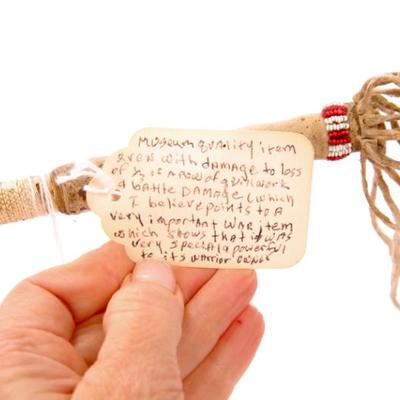 Museum quality item
even with damage to loss
of ½ of a row of quillwork
& battle damage (which
I believe points to a
very important war item
which shows that it was
very special & powerful
to its warrior owner